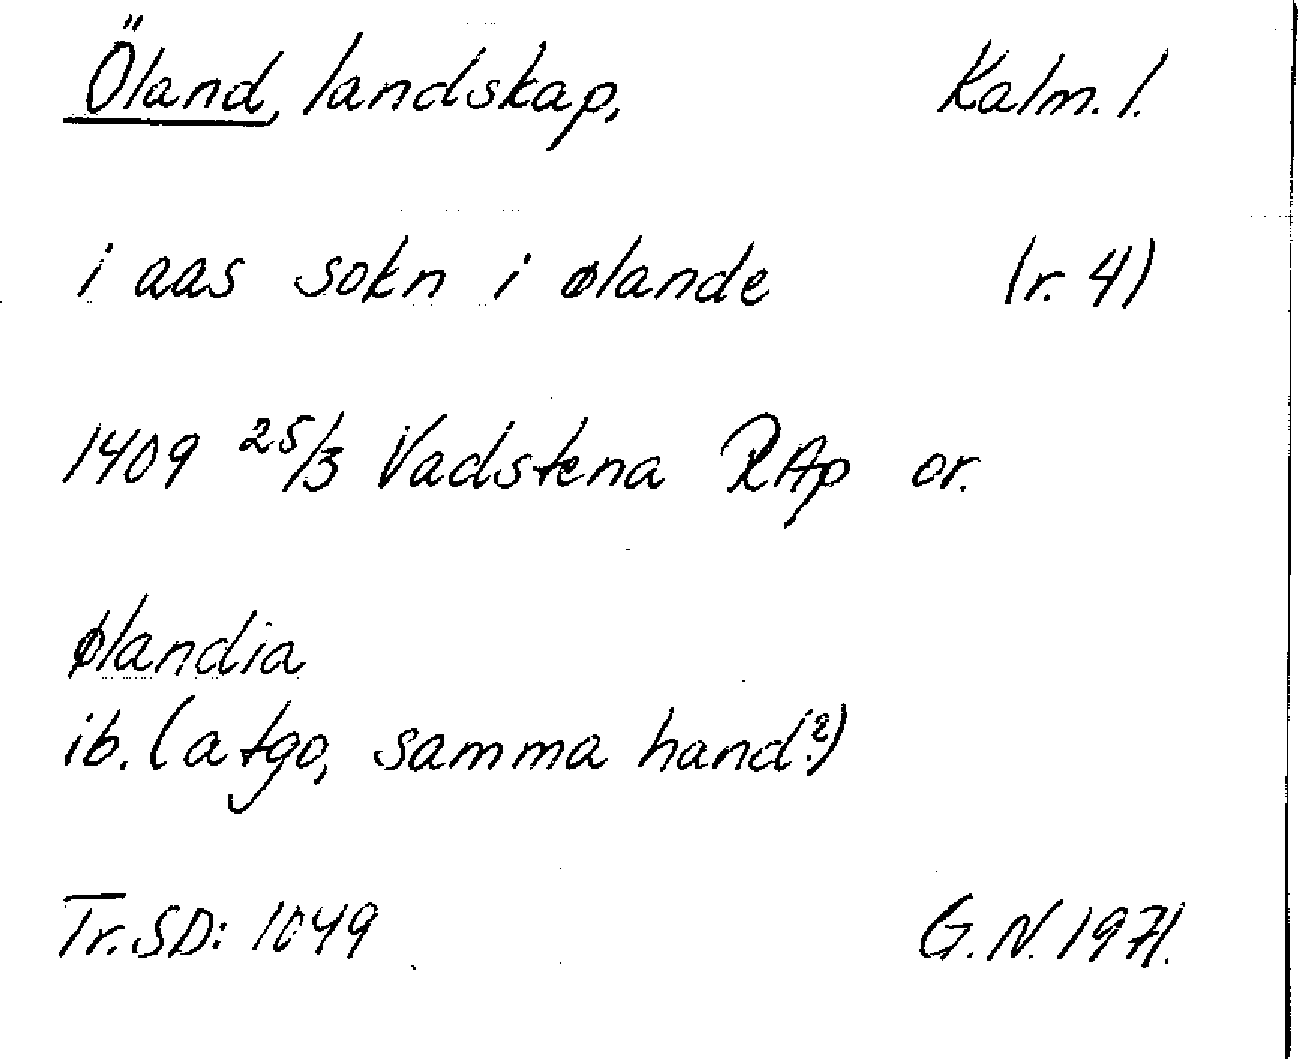 Öland, landskap, Kalm. l.
i aas sokn i ølande (r. 4)
1409 25/3 Vadstena RAp or.
ølandia
ib. (a tgo, samma hand?)
Tr. SD: 1049 G. N. 1971.